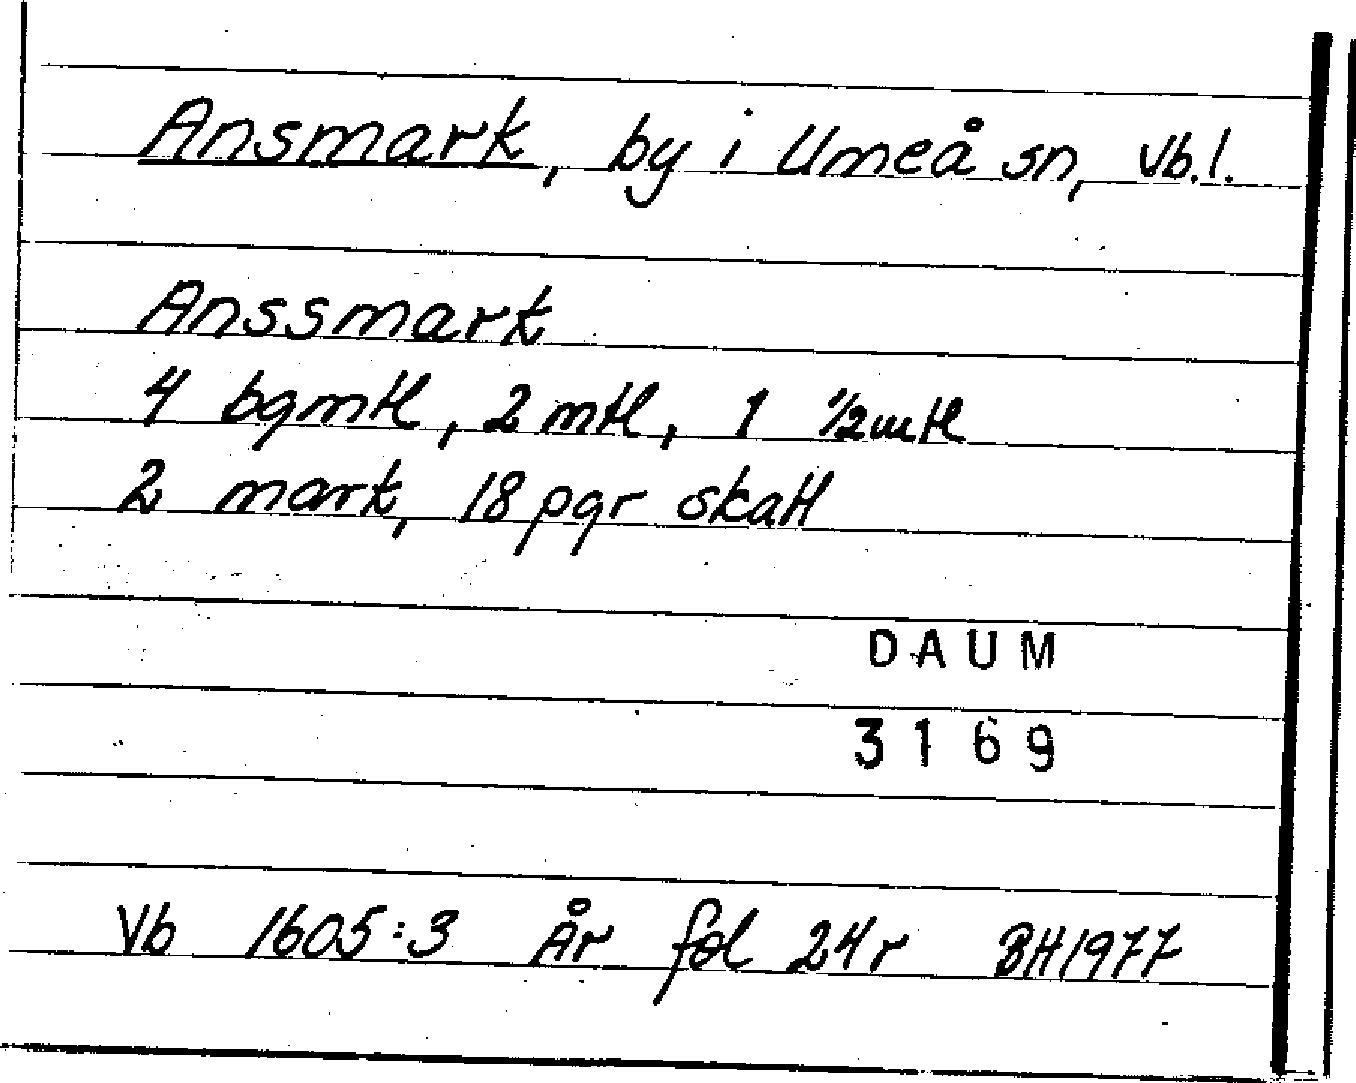 Ansmark, by i Umeå sn, Vb.l.
Anssmark
4 bgmtl, 2 mtl, 1 ½ mtl
2 mark, 18 pgr skatt
DAUM
3169
Vb 1605:3 År fol 24r BH1977